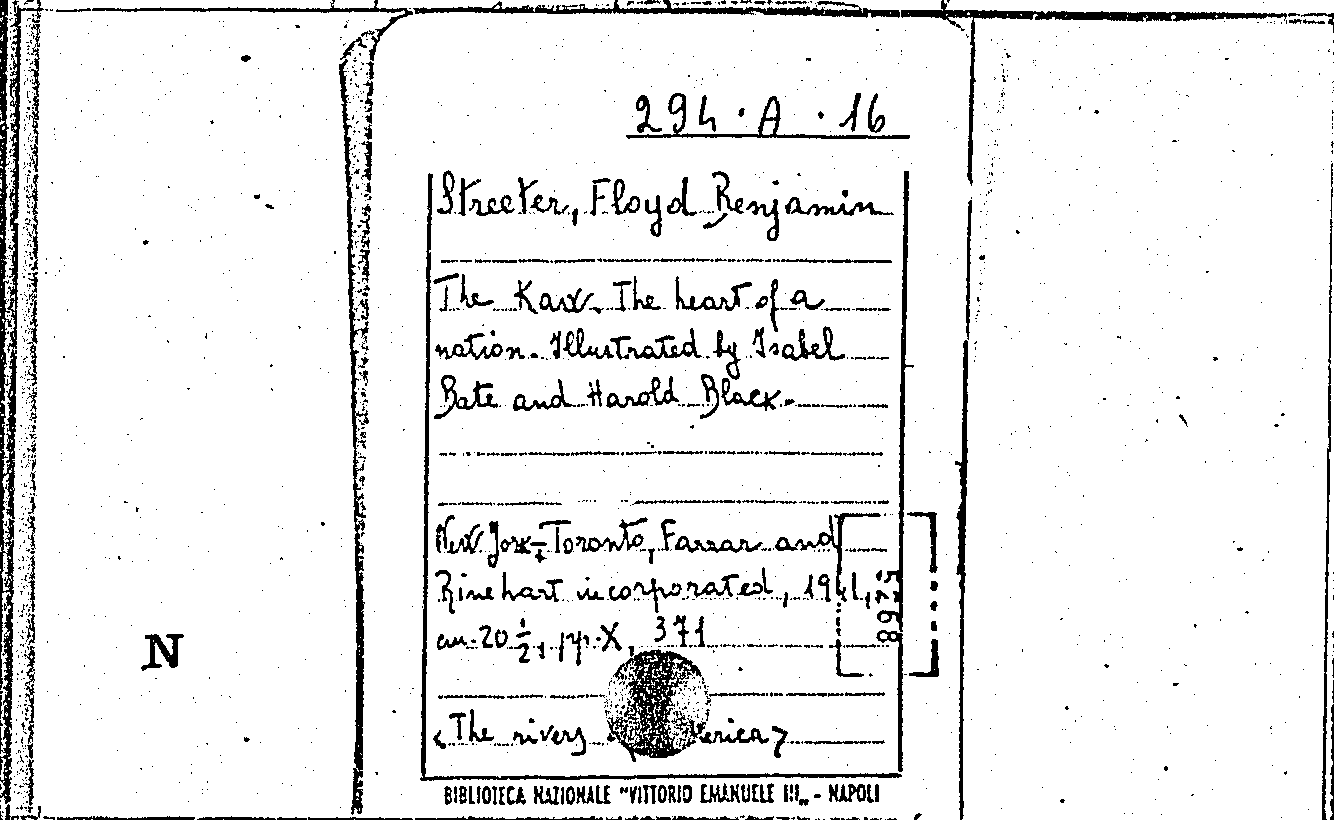 294 · A · 16
Streeter, Floyd Benjamin
The Kaw. The heart of a
nation. Illustrated by Isabel
Bate and Harold Black.
New York-Toronto, Farrar and
Rinehart incorporated, 1941,
cm. 20 1/2, pp. X, 371
7568
N
<The rivers erica>
BIBLIOTECA NAZIONALE "VITTORIO EMANUELE III„ - NAPOLI